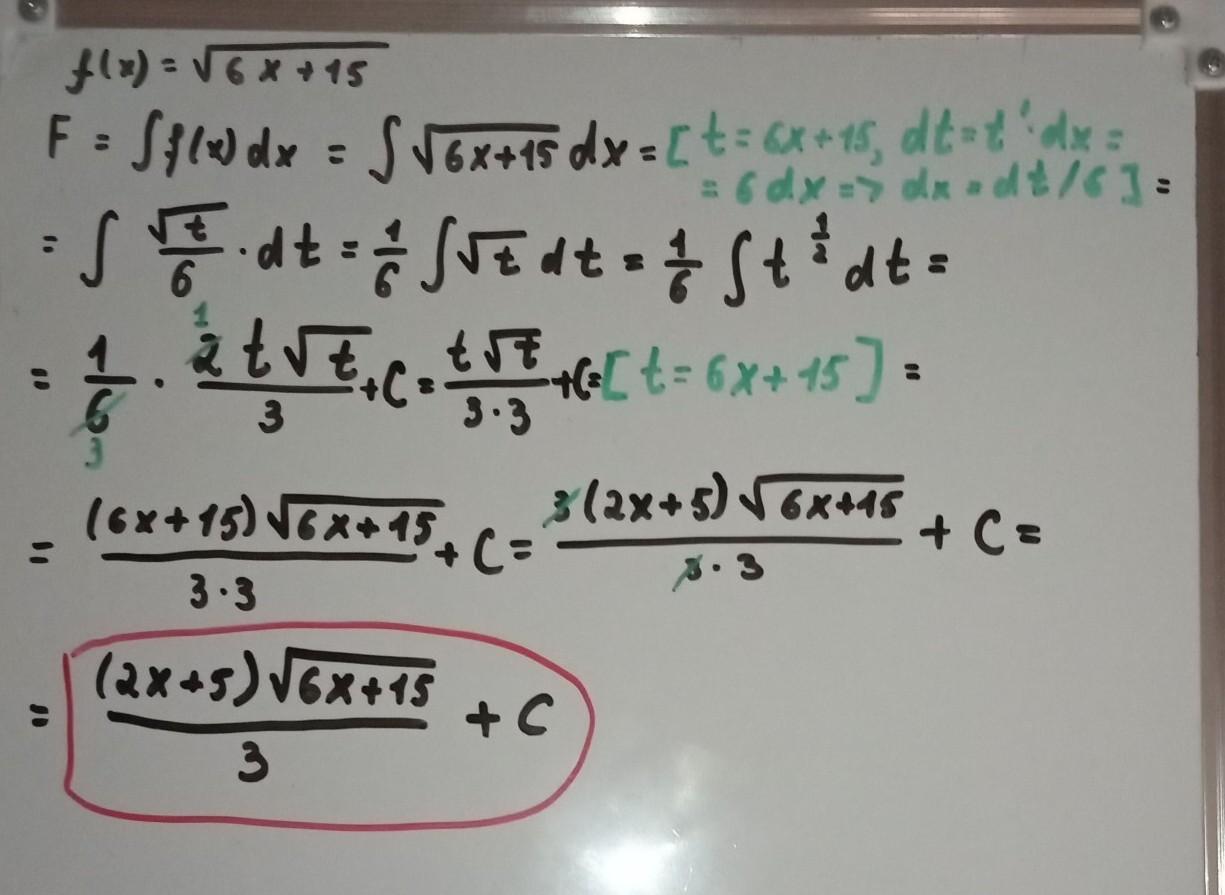 f(x) = √(6x+15)
F = ∫f(x)dx = ∫√(6x+15) dx = [t = 6x+15, dt = t'·dx =
= 6dx => dx = dt/6] =
= ∫ √t/6 · dt = 1/6 ∫√t dt = 1/6 ∫ t^(1/2) dt =
= 1/6 · 2t√t/3 + C = t√t/(3·3) + C = [t = 6x+15] =
= (6x+15)√(6x+15)/(3·3) + C = 3(2x+5)√(6x+15)/(3·3) + C =
= (2x+5)√(6x+15)/3 + C